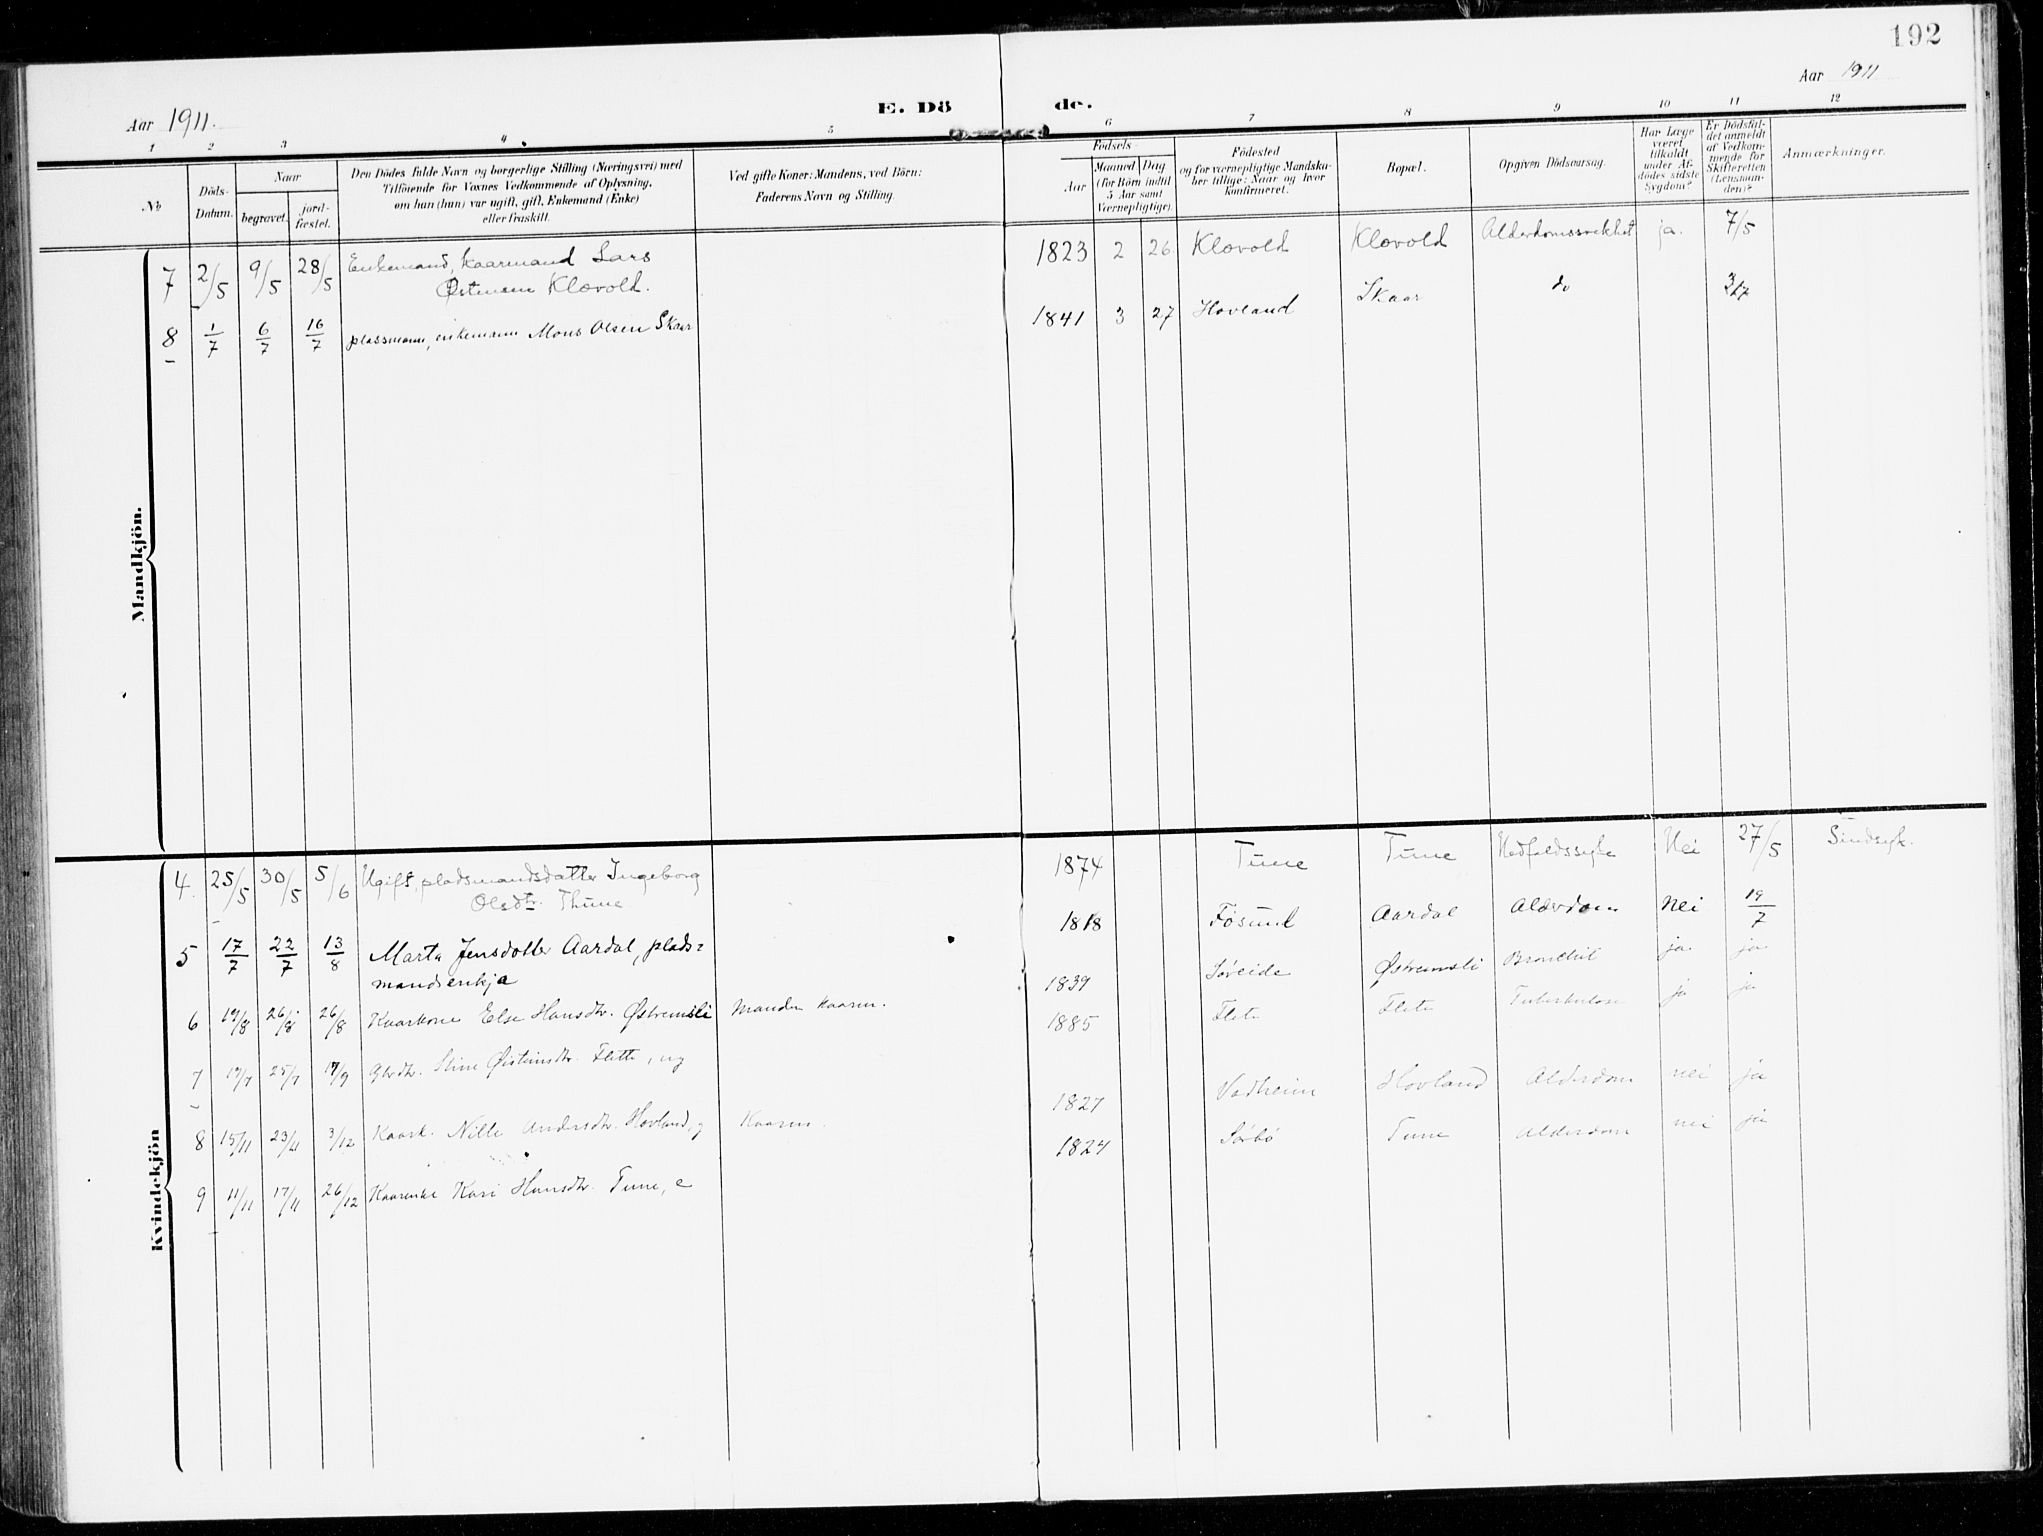 192
Aar 1911.
E. Döde.
Aar 1911
1 2 3 4 5 6 7 8 9 10 11 12
No
Döds-Datum.
Naar
begravet.
jord-fæstet.
Den Dödes fulde Navn og borgerlige Stilling (Næringsvei) med
Tilföiende for Voxnes Vedkommende af Oplysning,
om han (hun) var ugift, gift, Enkemand (Enke)
eller fraskilt.
Ved gifte Koner: Mandens, ved Börn:
Faderens Navn og Stilling.
Födsels-
Aar
Maaned
Dag
(for Börn indtil
5 Aar samt
Værnepligtige).
Födested
og for værnepligtige Mandska-
ber tillige: Naar og hvor
konfirmeret.
Bopæl.
Opgiven Dödsaarsag.
Har Læge
været
tilkaldt
under Af-
dødes sidste
Sygdom?
Er Dödsfal-
det anmeldt
af Vedkom-
mende for
Skifteretten
(Lensman-
den)?
Anmærkninger.
Mandkjön.
7 2/5 9/5 28/5 Enkemand, kaarmand Lars
Østensen Klævold.
1823 2 26 Klævold Klævold Alderdomssvækhet ja. 7/5
8 1/7 6/7 16/7 plassmann, enkemann Mons Olsen Skaar
1841 3 27 Hovland Skaar do 3/7
Kvindekjön
4. 25/5 30/5 5/6 Ugift, pladsmandsdatter Ingeborg
Olsdtr. Thune
1874 Tune Tune Nedfaldssyke Nei 27/5 Sindssyk.
5 17/7 22/7 13/8 Marta Jensdotter Aardal, plads=
mandsenkja
1818 Føsund Aardal Alderdom Nei 19/7
6 19/8 26/8 26/8 Kaarkone Else Hansdtr. Østremsli Manden kaarm.
1839 Søreide Østremsli Bronchit ja ja
7 19/7 25/7 17/9 Gbrdtr. Stine Øisteinsdtr. Flette, ug
1885 Flete Flete Tuberkulose ja ja
8 15/11 23/11 3/12 Kaark. Nille Andersdtr. Hovland, g Kaarm.
1827 Vadheim Hovland Alderdom nei ja
9 11/11 17/11 26/12 Kaarenke Kari Hansdtr. Tune, e
1824 Sørbø Tune Alderdom nei ja